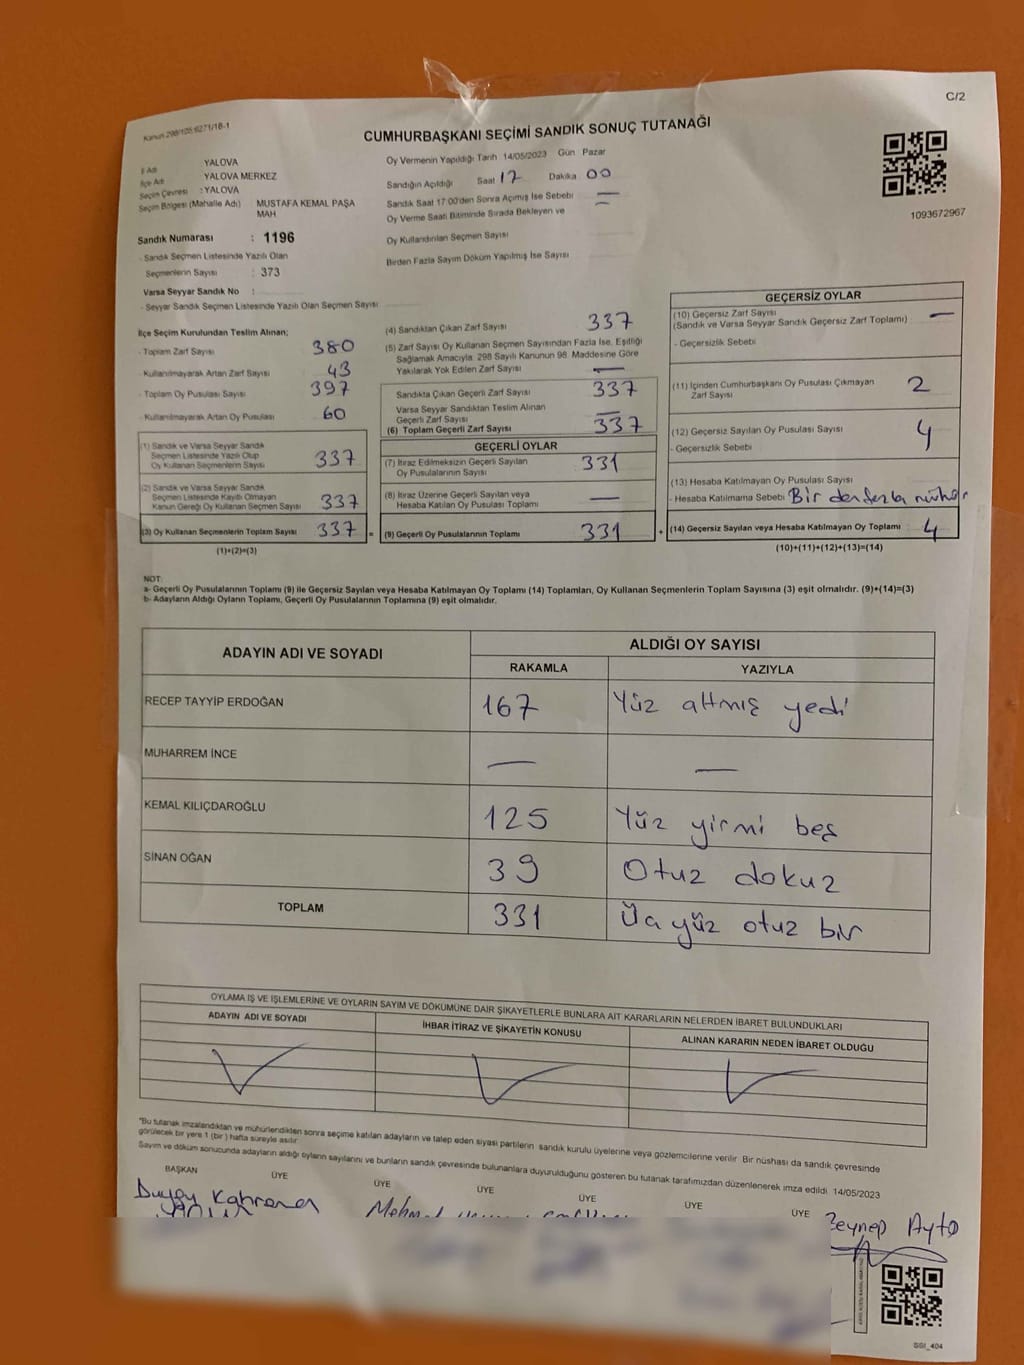 C/2
Kanun 298/105;6271/18-1
CUMHURBAŞKANI SEÇİMİ SANDIK SONUÇ TUTANAĞI
1093672967
İl Adı YALOVA
İlçe Adı YALOVA MERKEZ
Seçim Çevresi : YALOVA
Seçim Bölgesi (Mahalle Adı) MUSTAFA KEMAL PAŞA
MAH
Sandık Numarası : 1196
- Sandık Seçmen Listesinde Yazılı Olan
Seçmenlerin Sayısı : 373
Varsa Seyyar Sandık No :
- Seyyar Sandık Seçmen Listesinde Yazılı Olan Seçmen Sayısı
Oy Vermenin Yapıldığı Tarih 14/05/2023 Gün Pazar
Sandığın Açıldığı Saat 17 Dakika 00
Sandık Saat 17:00'den Sonra Açımış İse Sebebi —
Oy Verme Saati Bitiminde Sırada Bekleyen ve —
Oy Kullandırılan Seçmen Sayısı
Birden Fazla Sayım Döküm Yapılmış İse Sayısı
İlçe Seçim Kurulundan Teslim Alınan;
- Toplam Zarf Sayısı 380
- Kullanılmayarak Artan Zarf Sayısı 43
- Toplam Oy Pusulası Sayısı 397
- Kullanılmayarak Artan Oy Pusulası 60
(1) Sandık ve Varsa Seyyar Sandık
Seçmen Listesinde Yazılı Olup
Oy Kullanan Seçmenlerin Sayısı 337
(2) Sandık ve Varsa Seyyar Sandık
Seçmen Listesinde Kayıtlı Olmayan
Kanun Gereği Oy Kullanan Seçmen Sayısı 337
(3) Oy Kullanan Seçmenlerin Toplam Sayısı 337 =
(1)+(2)=(3)
(4) Sandıktan Çıkan Zarf Sayısı 337
(5) Zarf Sayısı Oy Kullanan Seçmen Sayısından Fazla İse, Eşitliği
Sağlamak Amacıyla 298 Sayılı Kanunun 98. Maddesine Göre
Yakılarak Yok Edilen Zarf Sayısı —
Sandıkta Çıkan Geçerli Zarf Sayısı 337
Varsa Seyyar Sandıktan Teslim Alınan
Geçerli Zarf Sayısı —
(6) Toplam Geçerli Zarf Sayısı 337
GEÇERLİ OYLAR
(7) İtiraz Edilmeksizin Geçerli Sayılan
Oy Pusulalarının Sayısı 331
(8) İtiraz Üzerine Geçerli Sayılan veya
Hesaba Katılan Oy Pusulası Toplamı —
(9) Geçerli Oy Pusulalarının Toplamı 331 +
GEÇERSİZ OYLAR
(10) Geçersiz Zarf Sayısı —
(Sandık ve Varsa Seyyar Sandık Geçersiz Zarf Toplamı)
- Geçersizlik Sebebi
(11) İçinden Cumhurbaşkanı Oy Pusulası Çıkmayan
Zarf Sayısı 2
(12) Geçersiz Sayılan Oy Pusulası Sayısı 4
- Geçersizlik Sebebi
(13) Hesaba Katılmayan Oy Pusulası Sayısı
- Hesaba Katılmama Sebebi Bir den fazla mühür
(14) Geçersiz Sayılan veya Hesaba Katılmayan Oy Toplamı 4
(10)+(11)+(12)+(13)=(14)
NOT:
a- Geçerli Oy Pusulalarının Toplamı (9) ile Geçersiz Sayılan veya Hesaba Katılmayan Oy Toplamı (14) Toplamları, Oy Kullanan Seçmenlerin Toplam Sayısına (3) eşit olmalıdır. (9)+(14)=(3)
b- Adayların Aldığı Oyların Toplamı, Geçerli Oy Pusulalarının Toplamına (9) eşit olmalıdır.
ADAYIN ADI VE SOYADI ALDIĞI OY SAYISI
RAKAMLA YAZIYLA
RECEP TAYYİP ERDOĞAN 167 Yüz altmış yedi
MUHARREM İNCE — —
KEMAL KILIÇDAROĞLU 125 Yüz yirmi beş
SİNAN OĞAN 39 Otuz dokuz
TOPLAM 331 Üç yüz otuz bir
OYLAMA İŞ VE İŞLEMLERİNE VE OYLARIN SAYIM VE DÖKÜMÜNE DAİR ŞİKAYETLERLE BUNLARA AİT KARARLARIN NELERDEN İBARET BULUNDUKLARI
ADAYIN ADI VE SOYADI İHBAR İTİRAZ VE ŞİKAYETİN KONUSU ALINAN KARARIN NEDEN İBARET OLDUĞU
*Bu tutanak imzalandıktan ve mühürlendikten sonra seçime katılan adayların ve talep eden siyasi partilerin sandık kurulu üyelerine veya gözlemcilerine verilir. Bir nüshası da sandık çevresinde
görülecek bir yere 1 (bir) hafta süreyle asılır.
Sayım ve döküm sonucunda adayların aldığı oyların sayılarını ve bunların sandık çevresinde bulunanlara duyurulduğunu gösteren bu tutanak tarafımızdan düzenlenerek imza edildi. 14/05/2023
BAŞKAN ÜYE ÜYE ÜYE ÜYE ÜYE ÜYE
Zeynep
SGI_404